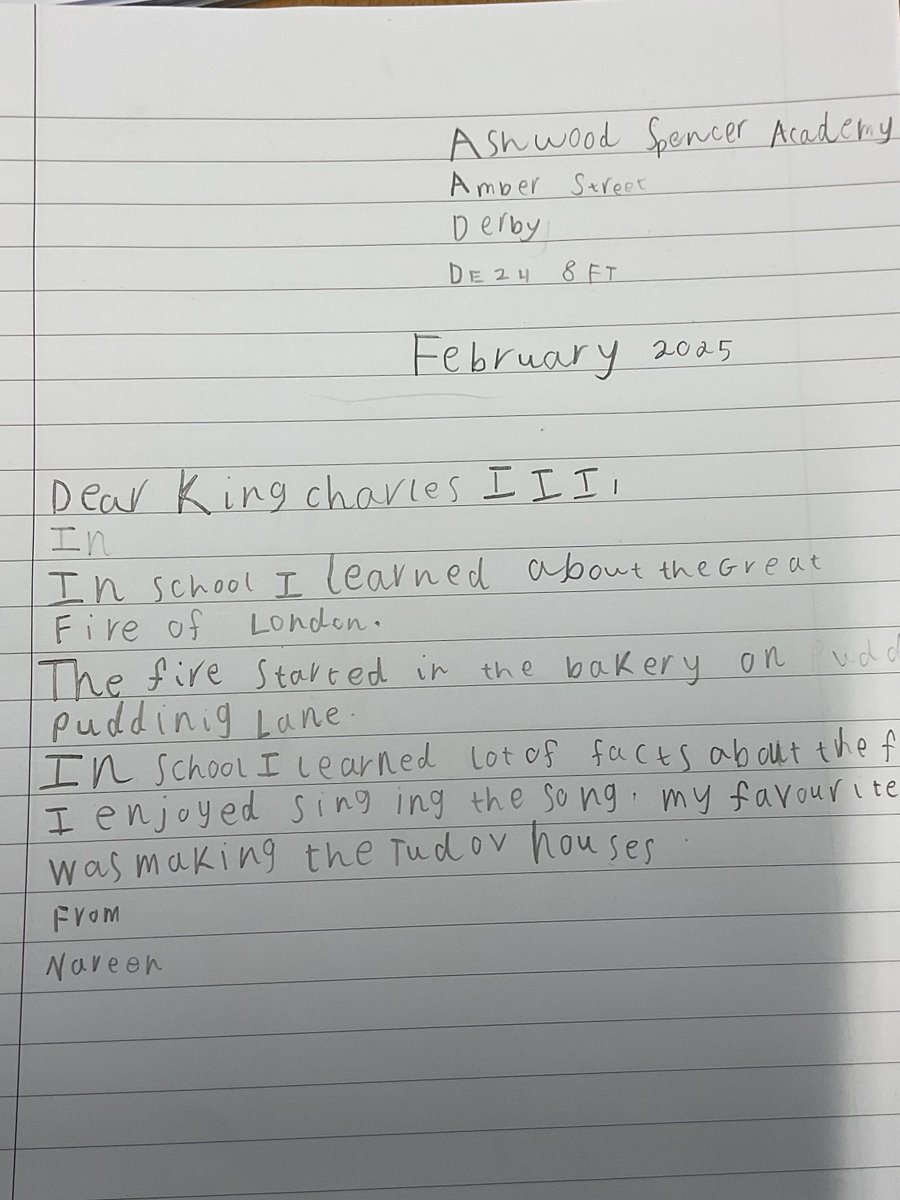 Ashwood Spencer Academy
Amber Street
Derby
DE24 8FT
February 2025
Dear King charles III,
In
In school I learned about the Great
Fire of London.
The fire started in the bakery on Pudd
puddinig Lane.
In school I learned lot of facts about the f
I enjoyed sing ing the song. my favourite
was making the Tudor houses.
From
Nareen